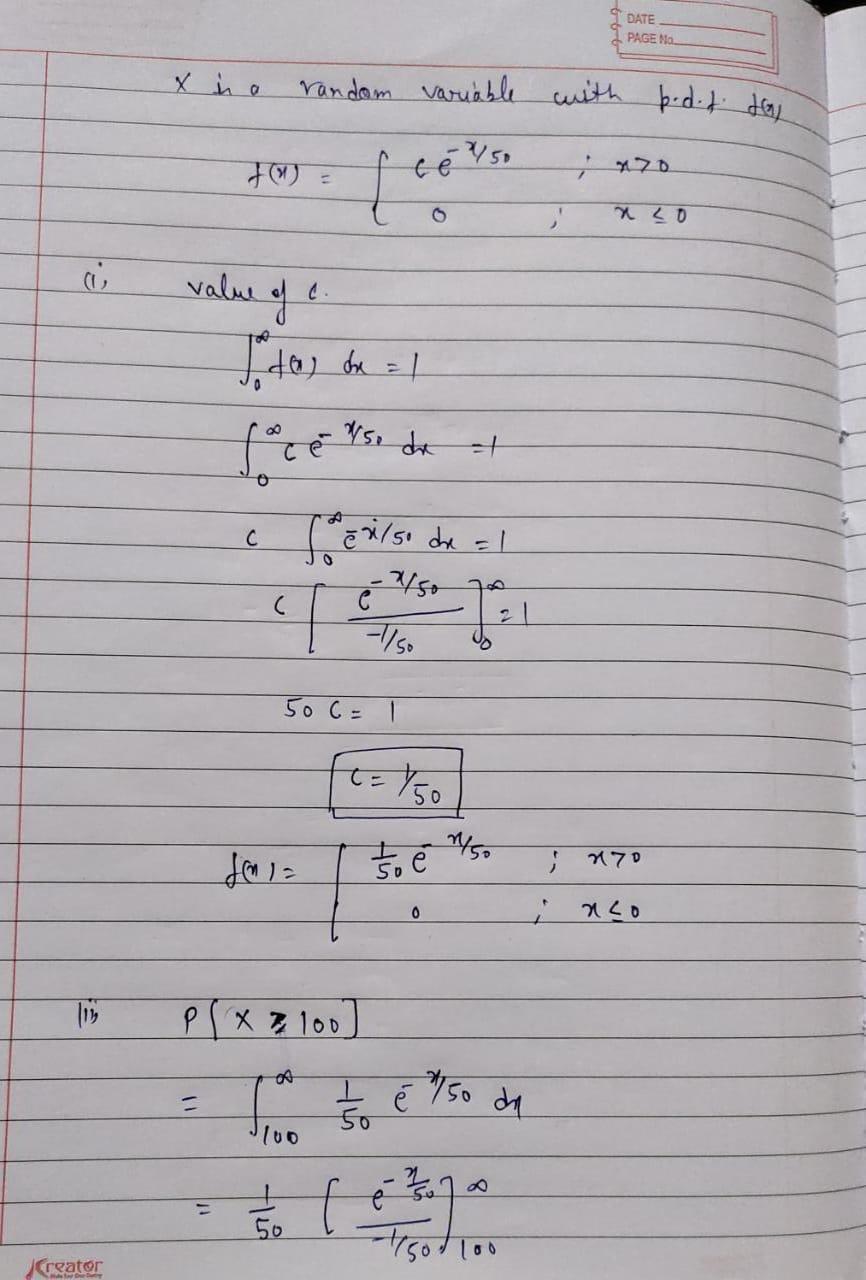 DATE
PAGE No.
X is a random variable with p.d.f. f(x)
f(x) = { c e^-x/50 ; x>0
0 ; x ≤ 0
(i) value of c.
∫_0^∞ f(x) dx = 1
∫_0^∞ c e^-x/50 dx = 1
c ∫_0^∞ e^-x/50 dx = 1
c [ e^-x/50 / -1/50 ]_0^∞ = 1
50 C = 1
C = 1/50
f(x) = { 1/50 e^-x/50 ; x>0
0 ; x ≤ 0
(ii) P[X ≥ 100]
= ∫_100^∞ 1/50 e^-x/50 dx
= 1/50 [ e^-x/50 / -1/50 ]_100^∞
Kreator